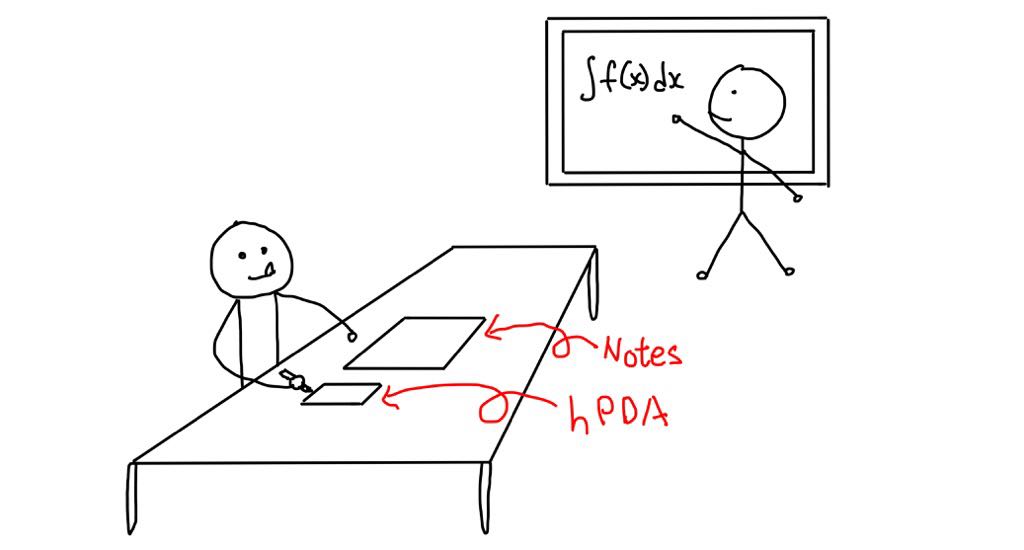 ∫f(x)dx
Notes
hPDA